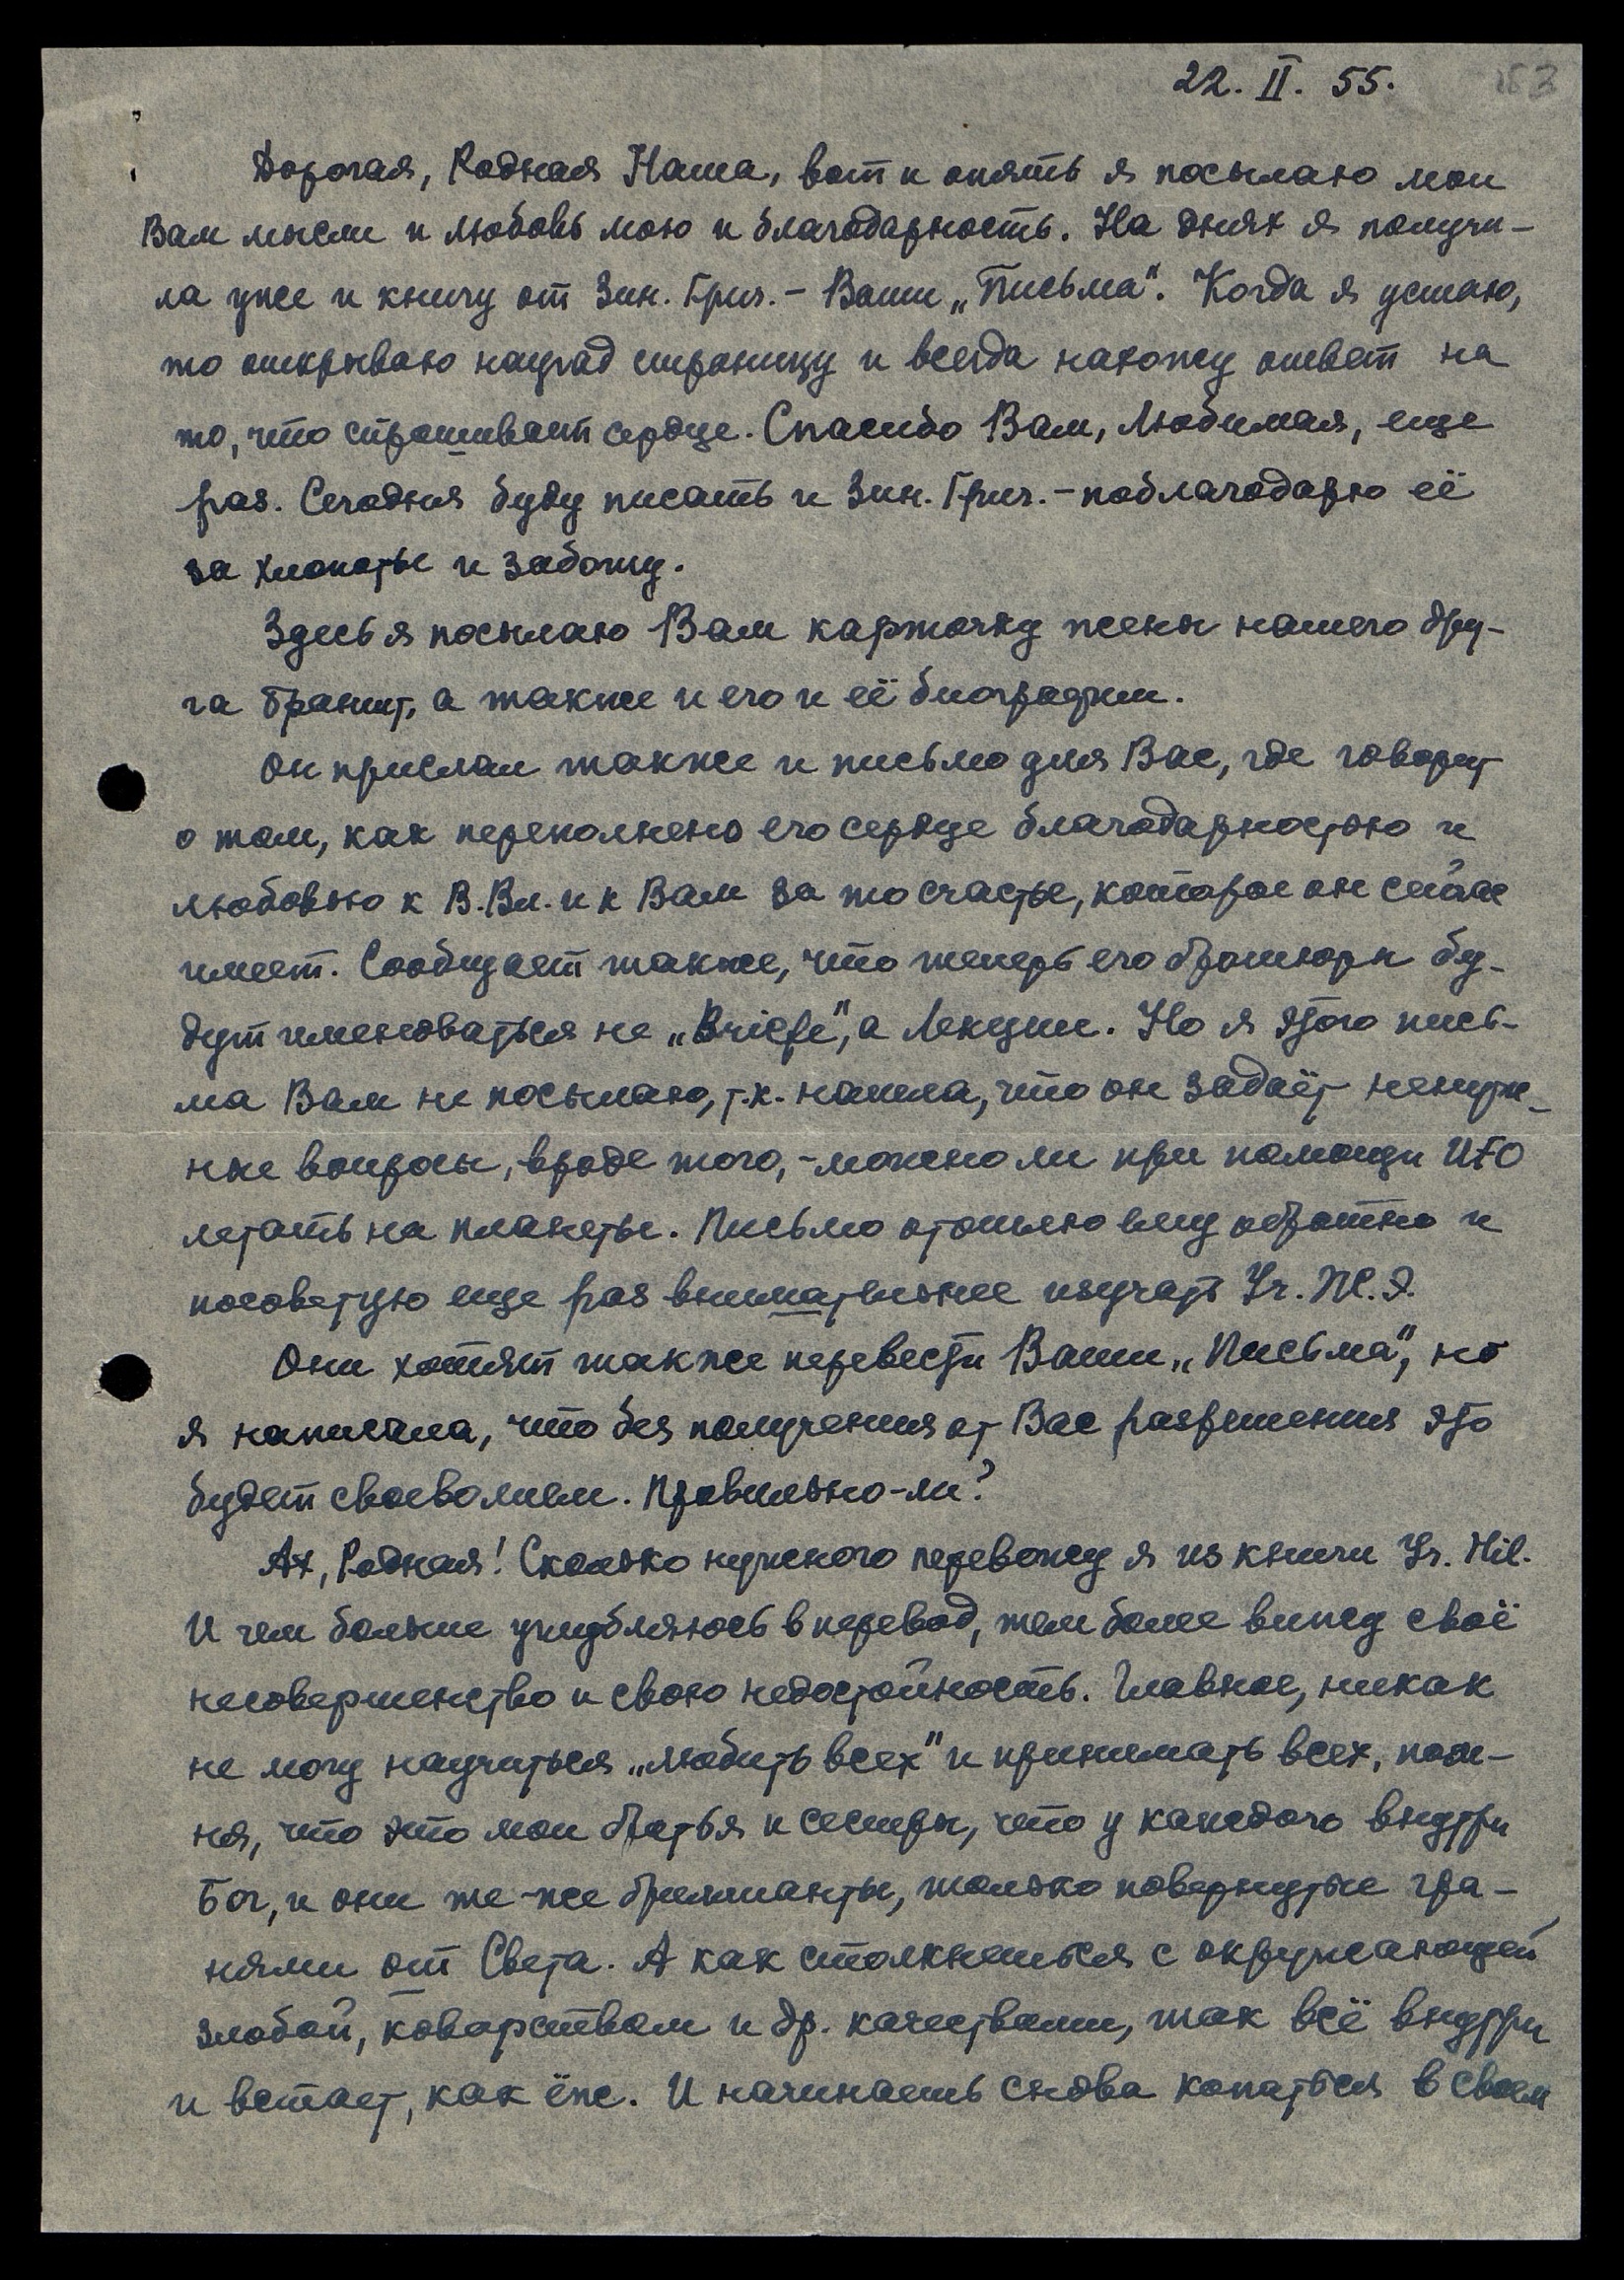 22. II. 55.
153
Дорогая, Родная Наша, вот и опять я посылаю мои
Вам мысли и любовь мою и благодарность. На днях я получи-
ла уже и книгу от Зин. Григ. – Ваши „Письма". Когда я устаю,
то открываю наугад страницу и всегда нахожу ответ на
то, что спрашивает сердце. Спасибо Вам, Любимая, еще
раз. Сегодня буду писать и Зин. Григ. – поблагодарю её
за хлопоты и заботу.
Здесь я посылаю Вам карточку жены нашего дру-
га Брандт, а также и его и её биографии.
Он прислал также и письмо для Вас, где говорит
о том, как переполнено его сердце благодарностью и
любовью к В.Вл. и к Вам за то счастье, которое он сейчас
имеет. Сообщает также, что теперь его брошюры бу-
дут именоваться не „Briefe", а Лекции. Но я этого пись-
ма Вам не посылаю, т.к. нашла, что он задаёт ненуж-
ные вопросы, вроде того, – можно ли при помощи UFO
летать на планеты. Письмо отошлю ему обратно и
посоветую еще раз внимательнее изучать Уч. Ж.Э.
Они хотят также перевести Ваши „Письма", но
я написала, что без получения от Вас разрешения это
будет своеволием. Правильно-ли?
Ах, Родная! Сколько нужного перевожу я из книги Уч. Hil.
И чем больше углубляюсь в перевод, тем более вижу своё
несовершенство и свою недостойность. Главное, никак
не могу научиться „любить всех" и принимать всех, пом-
ня, что это мои братья и сестры, что у каждого внутри
Бог, и они те-же бриллианты, только повернутые гра-
нями от Света. А как столкнешься с окружающей
злобой, коварством и др. качествами, так всё внутри
и встает, как ёж. И начинаешь снова копаться в своем